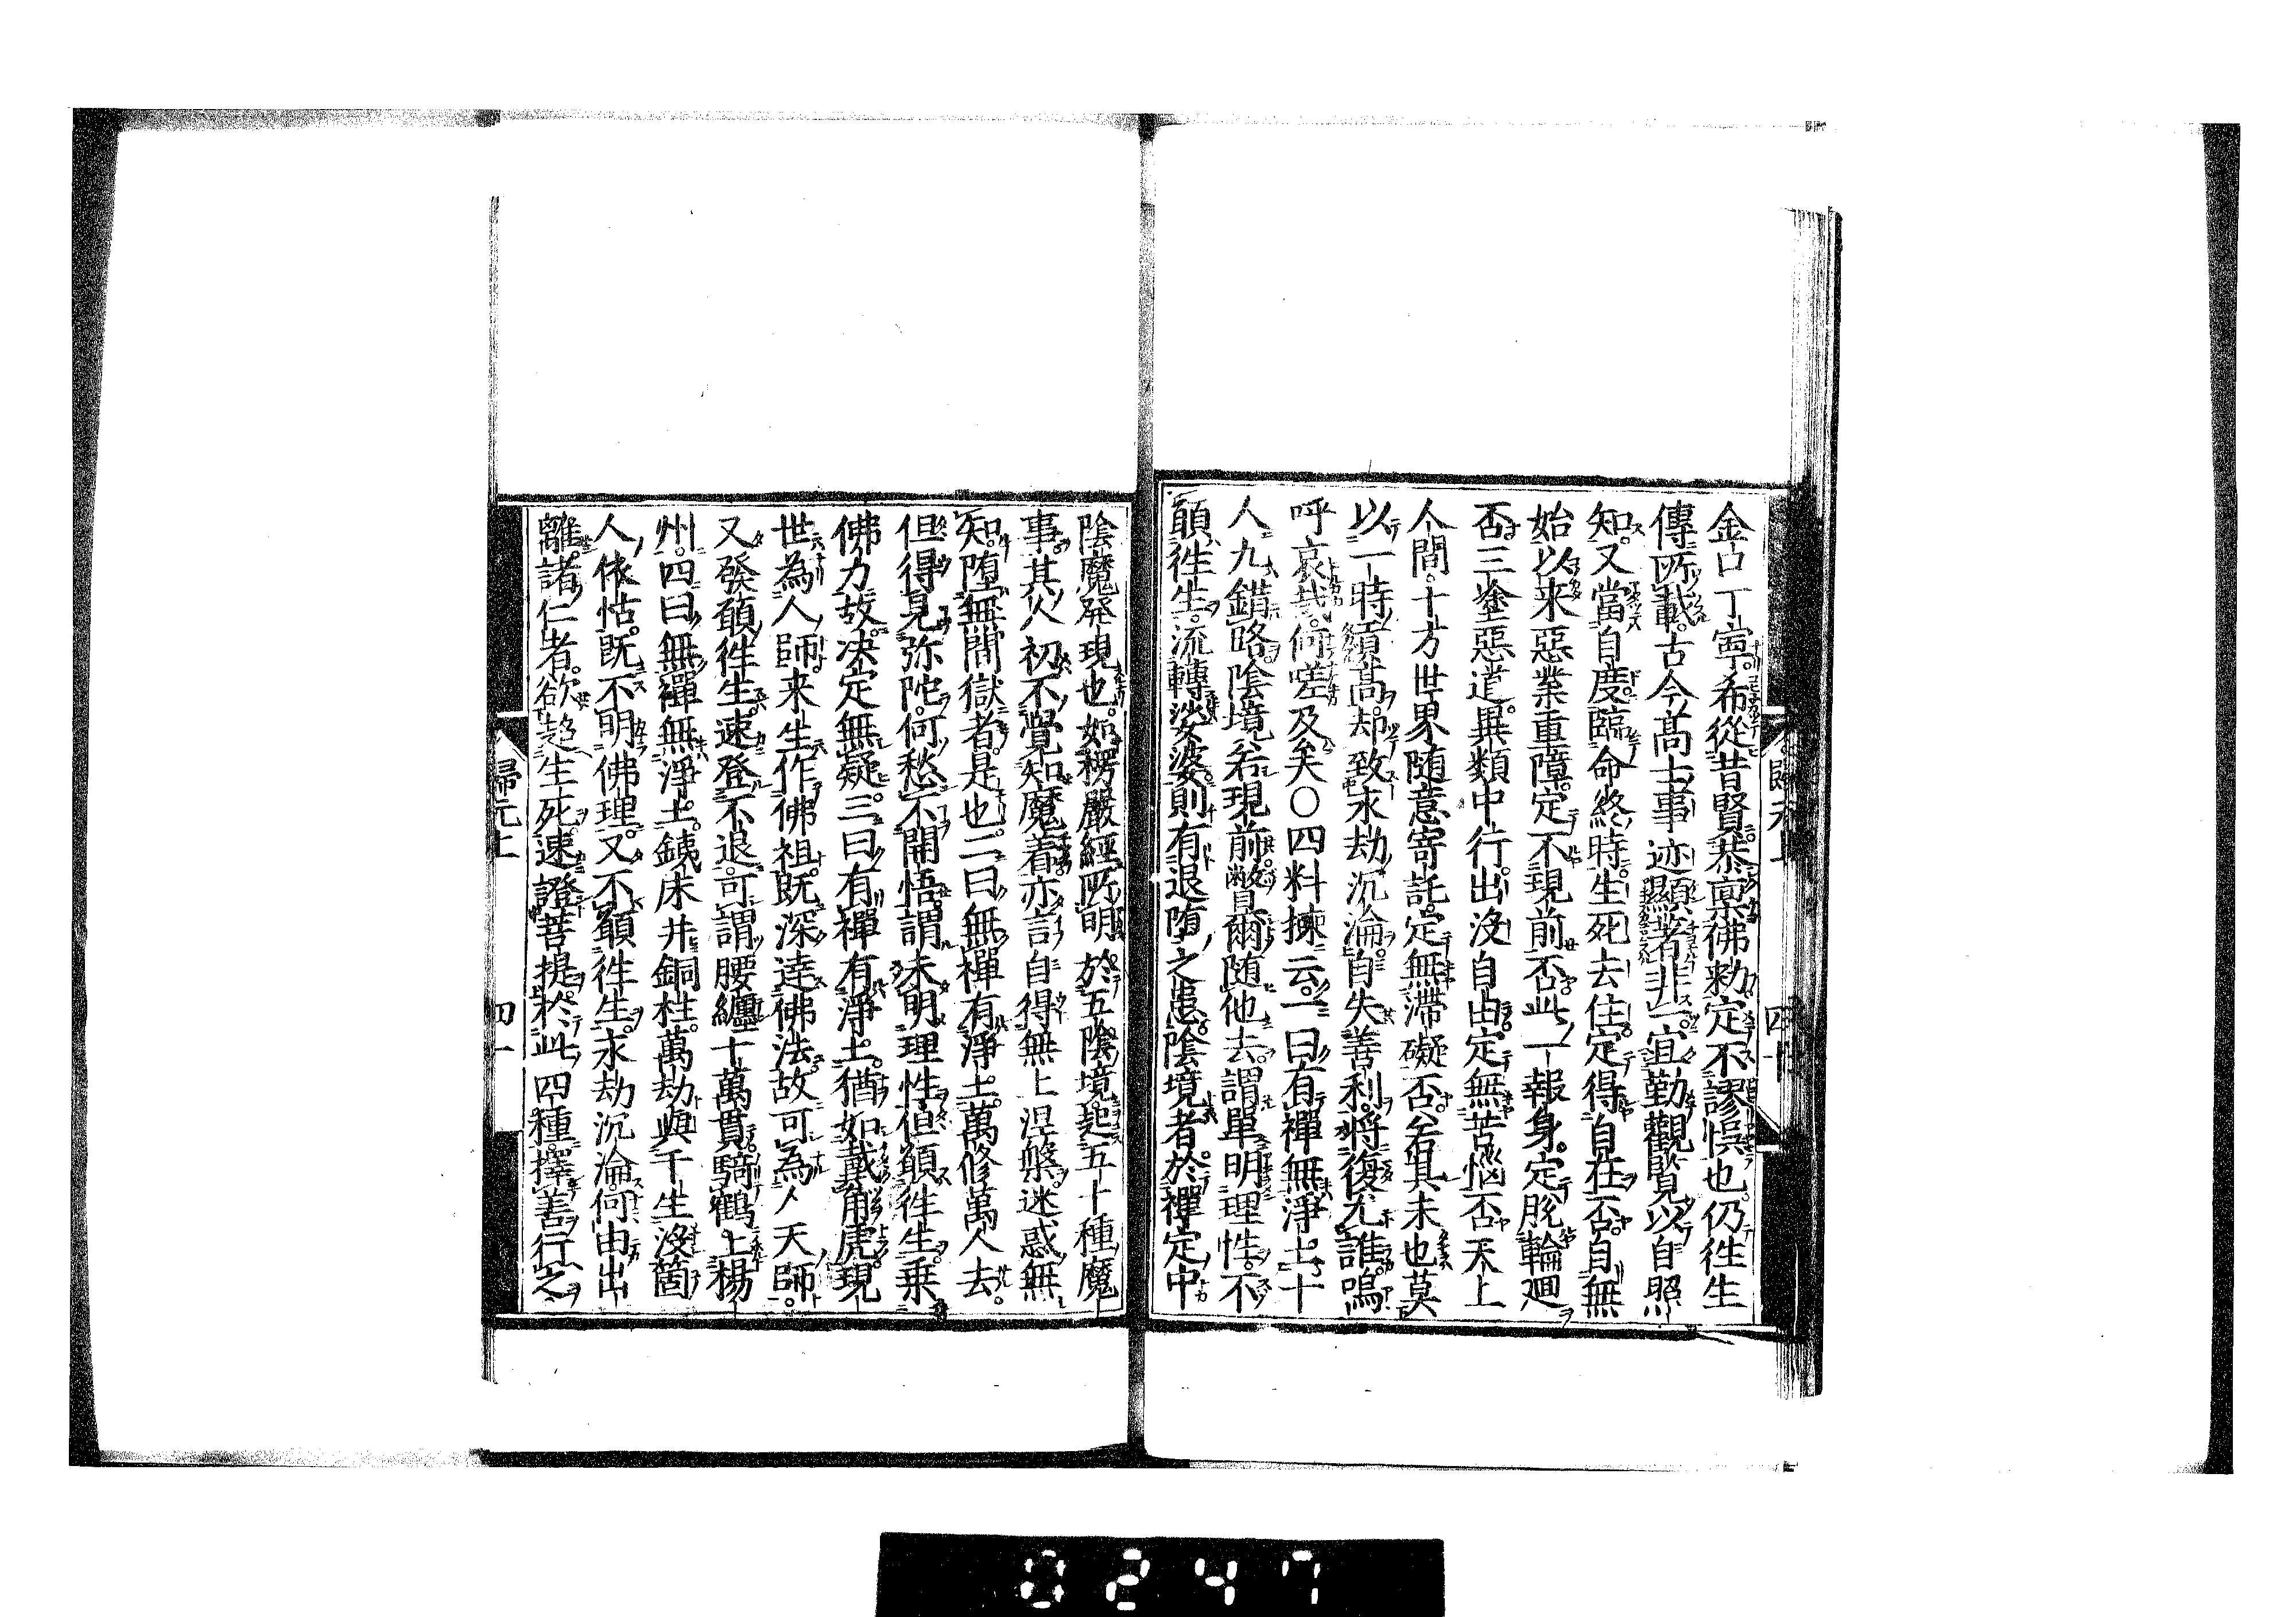 金口丁寧希從昔賢恭稟佛勑定不謬悞也仍徃生
傳所載古今髙士事迹顯著非一宜勤觀覽以自照
知又當自度臨命終時生死去住定得自在否自無
始以来惡業重障定不現前否此一報身定脫輪廻
否三塗惡道異類中行出沒自由定無苦惱否天上
人間十方世界随意寄託定無滯礙否若其未也莫
以一時貢髙却致永劫沉淪自失善利將復尤誰嗚
呼哀哉何嗟及矣〇四料揀云一曰有禪無淨土十
人九錯路陰境若現前瞥爾随他去謂單明理性不
願徃生流轉娑婆則有退堕之患陰境者於禪定中
陰魔発現也如楞嚴經所明於五陰境起五十種魔
事其人初不覺知魔着亦言自得無上涅槃迷惑無
知堕無間獄者是也二曰無禪有淨土萬修萬人去
但得見弥陀何愁不開悟謂未明理性但願徃生乗
佛力故决定無疑三曰有禪有淨土猶如戴角虎現
世為人師来生作佛祖既深達佛法故可為人天師
又發願徃生速登不退可謂腰纏十萬貫騎鶴上楊
州四曰無禪無淨土銕床并銅柱萬劫與千生沒箇
人依怙既不明佛理又不願徃生永劫沉淪何由出
離諸仁者欲超生死速證菩提於此四種擇善行之
歸元上
四一
0247